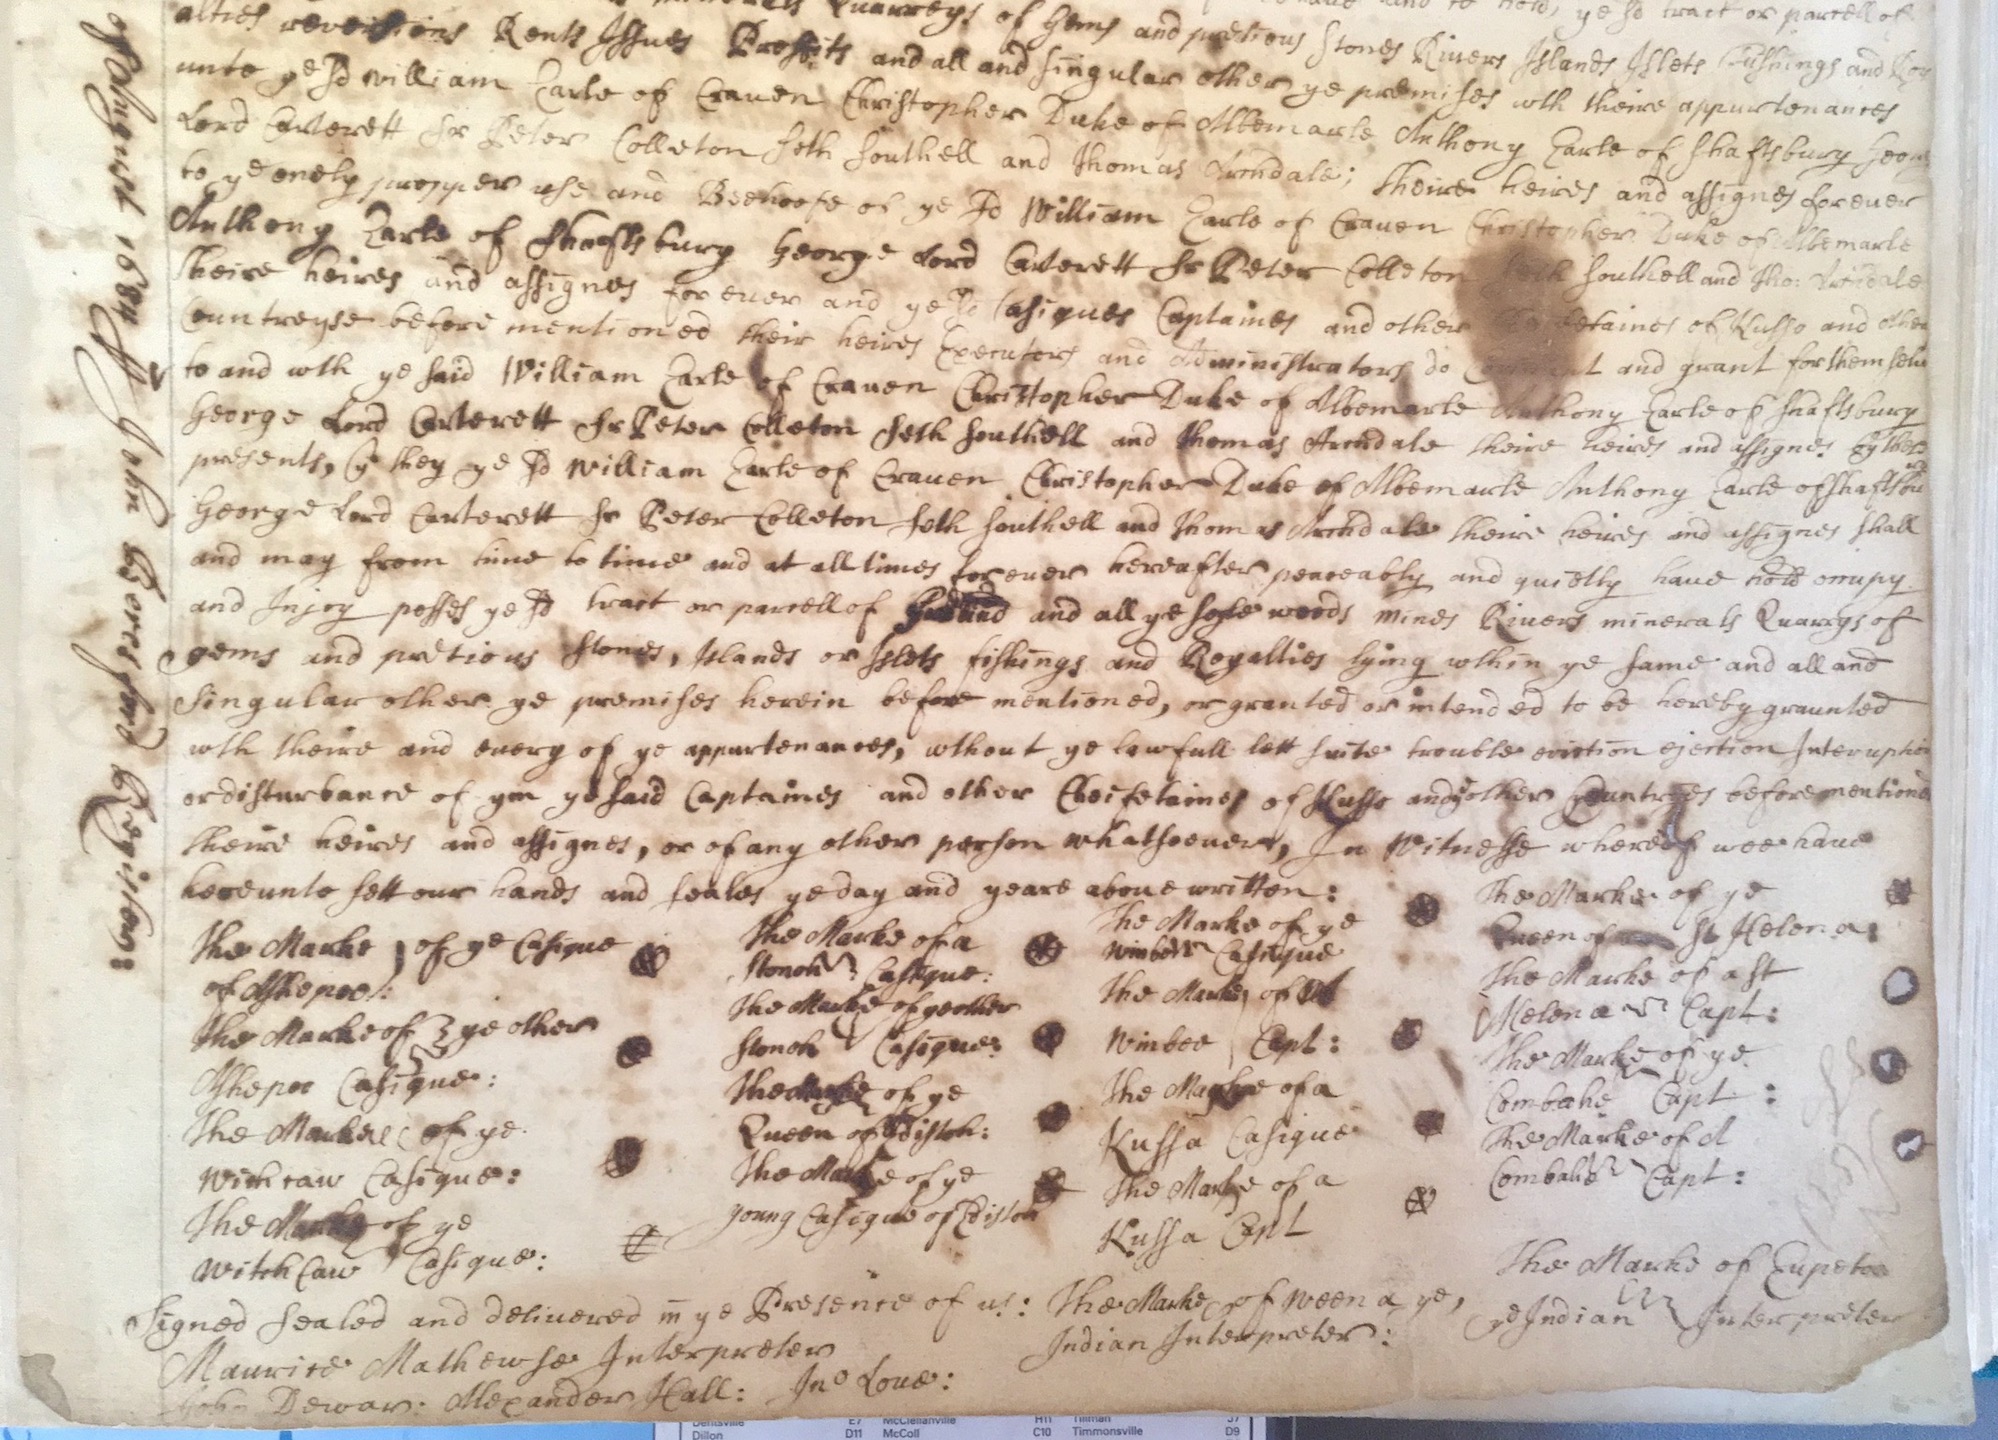 minerals Quarreys of Gems and pretious Stones Rivers Islands Islets fishings and Roy
alties reversions Rents Issues Proffits and all and singular other ye premises wth theire appurtenances
unto ye sd William Earle of Craven Christopher Duke of Albemarle Anthony Earle of Shaftsbury George
Lord Carterett Sr Peter Colleton Seth Southell and Thomas Archdale; theire heires and assignes forever
to ye onely propper use and Beehoofe of ye sd William Earle of Craven Christopher Duke of Albemarle
Anthony Earle of Shaftsbury George Lord Carterett Sr Peter Colleton Seth Southell and Tho: Archdale
theire heires and assignes for ever and ye sd Casiques Captaines and other Chefetaines of Kusso and other
Countreyse before mentioned their heires Executors and Administrators do Covenant and grant for themselves
to and wth ye said William Earle of Craven Christopher Duke of Albemarle Anthony Earle of Shaftsbury
George Lord Carterett Sr Peter Colleton Seth Southell and Thomas Archdale theire heires and assignes by these
presents, yt they ye sd William Earle of Craven Christopher Duke of Albemarle Anthony Earle of Shaftsbu
George Lord Carterett Sr Peter Colleton Seth Southell and Thomas Archdale theire heires and assignes shall
and may from time to time and at all times for ever hereafter peaceably and quietly have hold occupy
and Injoy posses ye sd tract or parcell of Land and all ye soyle woods mines Rivers minerals Quarrys of
gems and pretious stones, Islands or Islets fishings and Royallties lying wthin ye same and all and
singular other ye premises herein before mentioned, or granted or intended to be hereby graunted
wth theire and every of ye appurtenances, wthout ye lawfull lett suite trouble eviction ejection Interuption
or disturbance of ym ye said Captaines and other Cheifetaines of Kusso and other Countryes before mentioned
theire heires and assignes, or of any other person whatsoever, In Witnesse whereof wee have
hereunto sett our hands and seales ye day and yeare above written:
The Marke of ye Casique
of Ashepoo:
The Marke of ye other
Ashepoo Casique:
The Marke of ye
Witchcaw Casique:
The Marke of ye
Witch Caw Casique:
The Marke of a
Stonoh Casique:
The Marke of ye other
Stonoh Casique:
The Marke of ye
Queen of Edistoh:
The Marke of ye
young Casique of Edistoh
The Marke of ye
Wimbee Casique
The Marke of
Wimbee Capt:
The Marke of a
Kussa Casique
The Marke of a
Kussa Capt
The Marke of ye
Queen of St Helena:
The Marke of a St
Helena Capt:
The Marke of ye
Combahe Capt:
The Marke of a
Combahe Capt:
Signed Sealed and delivered in ye Presence of us:
Maurice Mathewse Interpreter
John Dewar: Alexander Hall: Jno Love:
The Marke of Weena ye,
Indian Interpreter:
The Marke of
ye Indian Interpreter
of August 1684 John Beresford Register:
Dentsville E7 McClellanville H11 Tillman J7
Dillon D11 McColl C10 Timmonsville D9